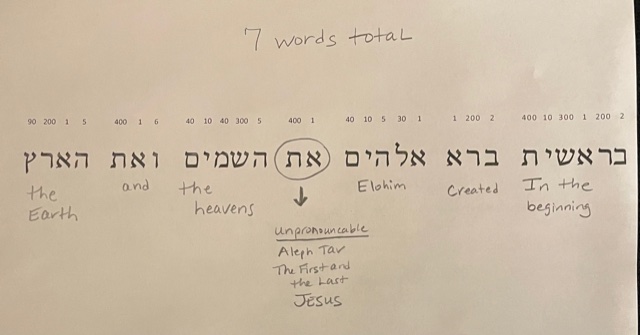 7 words total
90 200 1 5 400 1 6 40 10 40 300 5 400 1 40 10 5 30 1 1 200 2 400 10 300 1 200 2
בראשית ברא אלהים את השמים ואת הארץ
the
Earth
and
the
heavens
Elohim
Created
In the
beginning
Unpronouncable
Aleph Tav
The First and
the Last
JESUS